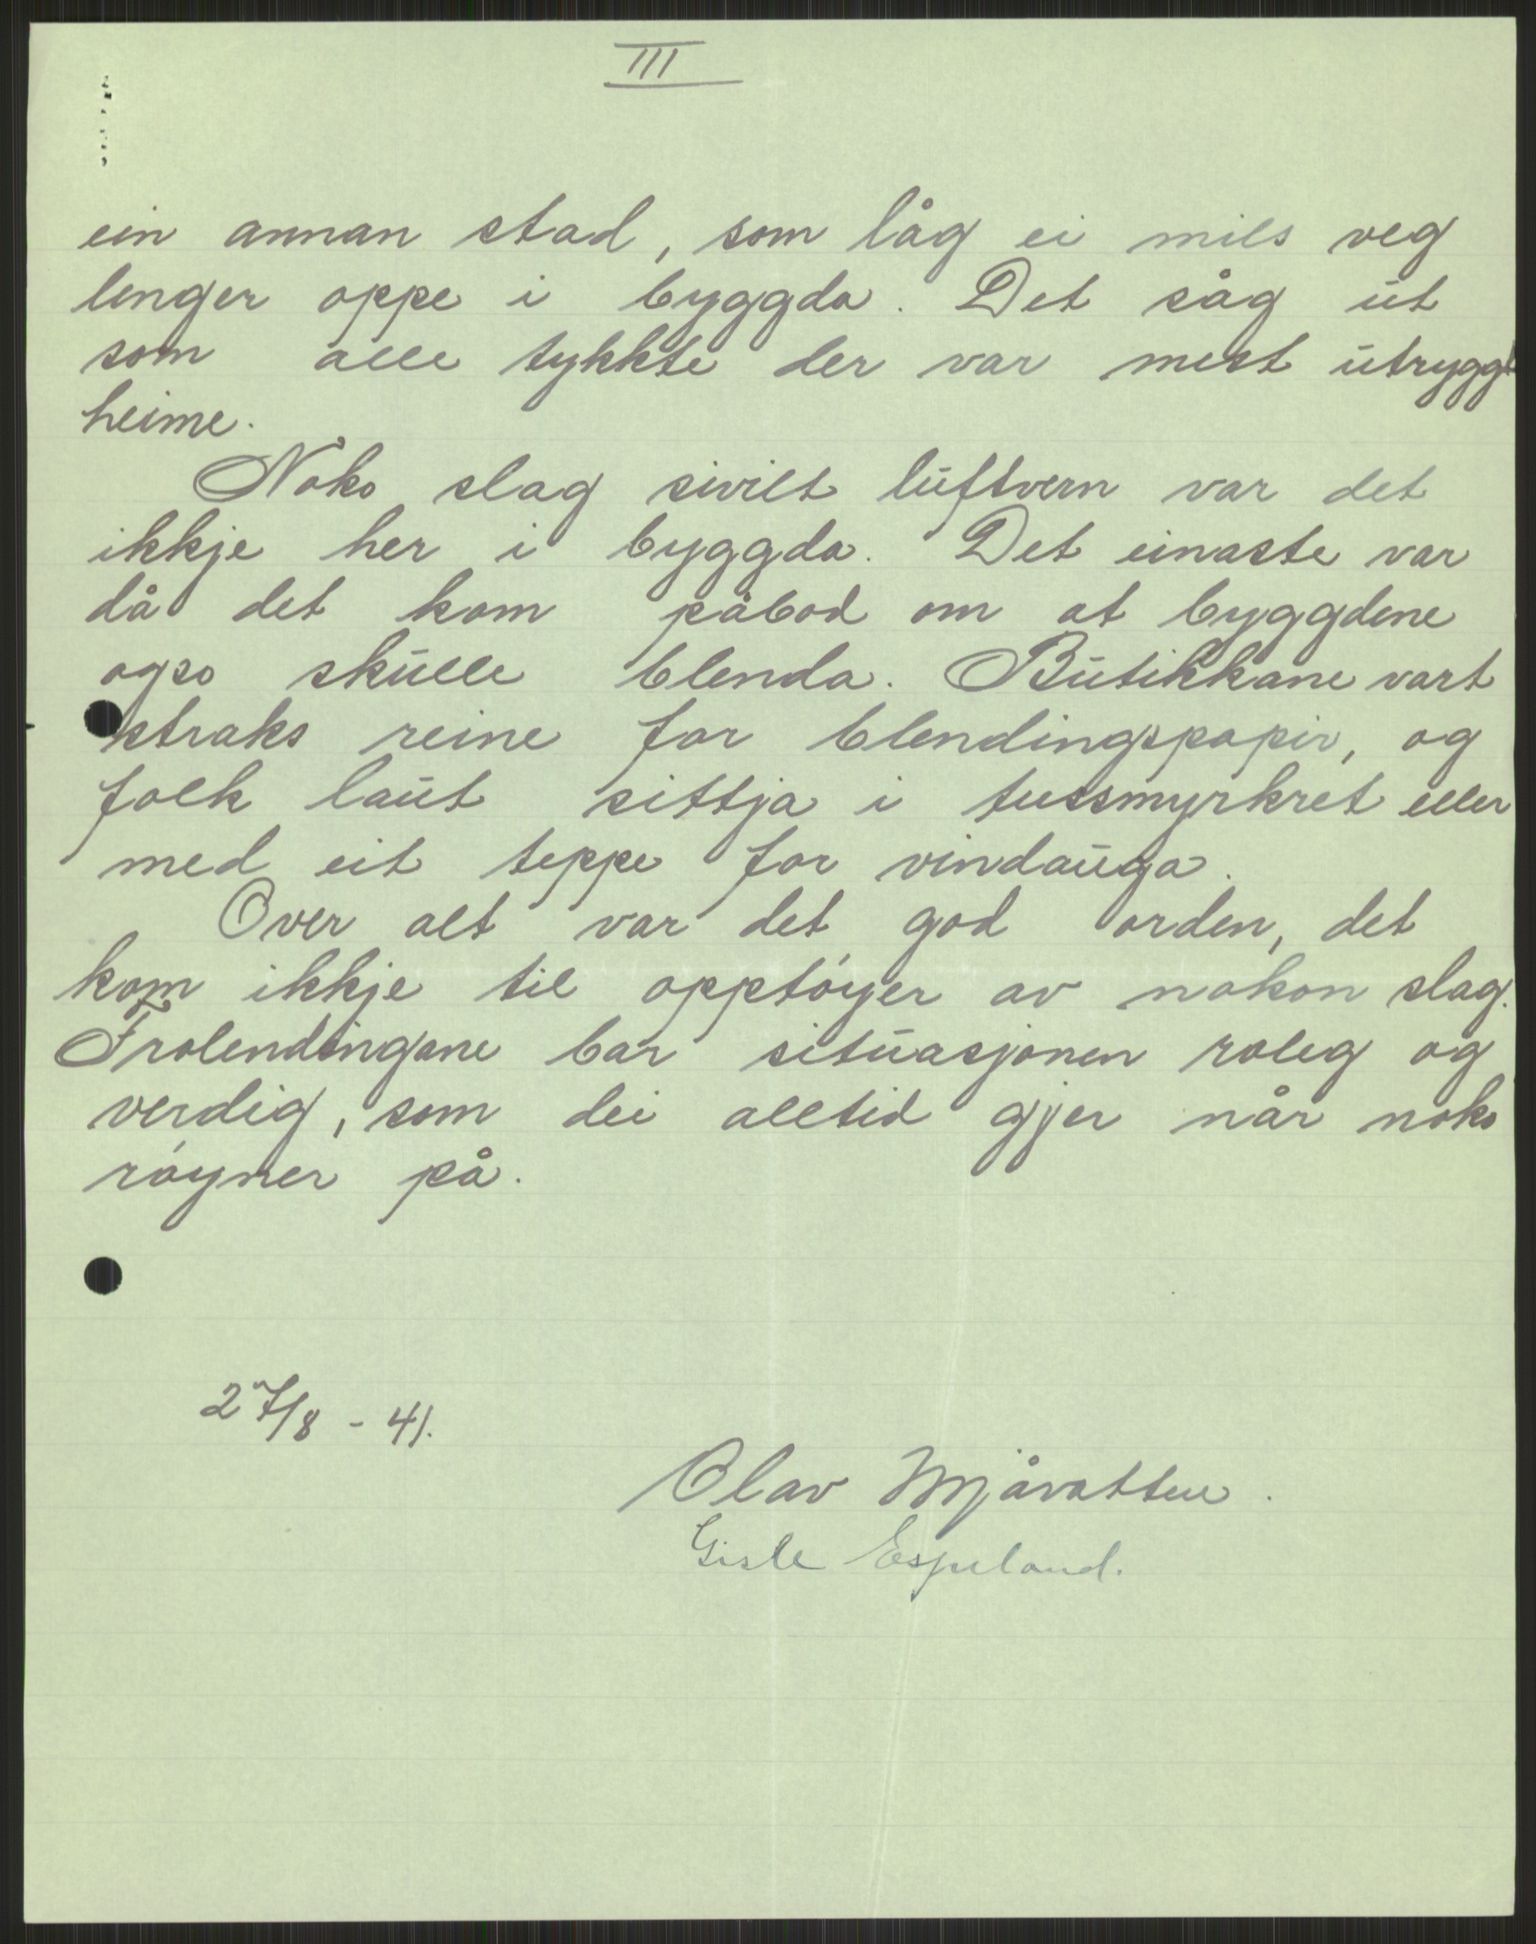 III
ein annan stad, som låg ei mils veg
lenger oppe i byggda. Det såg ut
som alle tykkte der var mest utrygt
heime.
Noko slag sivilt luftvern var det
ikkje her i byggda. Det einaste var
då det kom påbod om at byggdene
ogso skulle blenda. Butikkane vart
straks reine for blendingspapir, og
folk laut sittja i tussmyrkret eller
med eit teppe for vindauga.
Over alt var det god orden, det
kom ikkje til opptøyer av nokon slag.
Frolendingane bar situasjonen roleg og
verdig, som dei alltid gjer når noko
røyner på.
27/8 - 41.
Olav Mjåvatten.
Gisle Espeland.